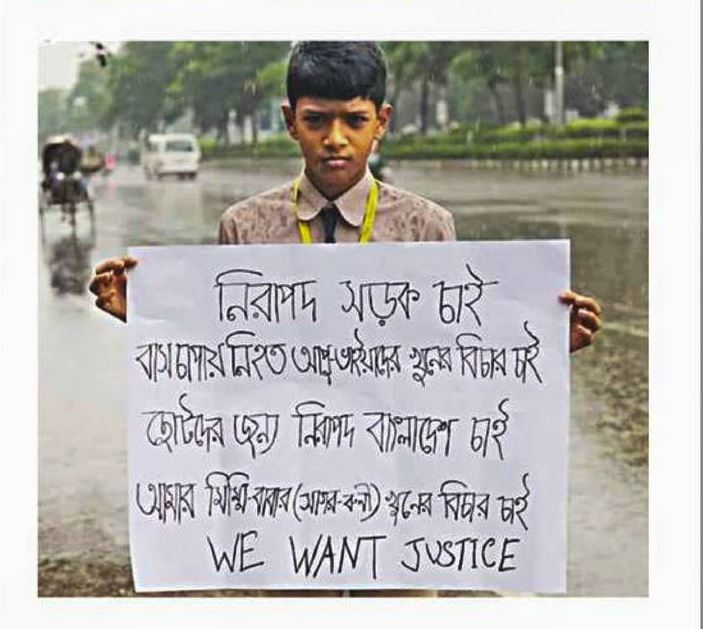 নিরাপদ সড়ক চাই
বাস চাপায় নিহত আপু-ভাইয়াদের খুনের বিচার চাই
ছোটদের জন্য নিরাপদ বাংলাদেশ চাই
আমার মিম্মি-বাবার (সাগর-রুনী) খুনের বিচার চাই
WE WANT JUSTICE